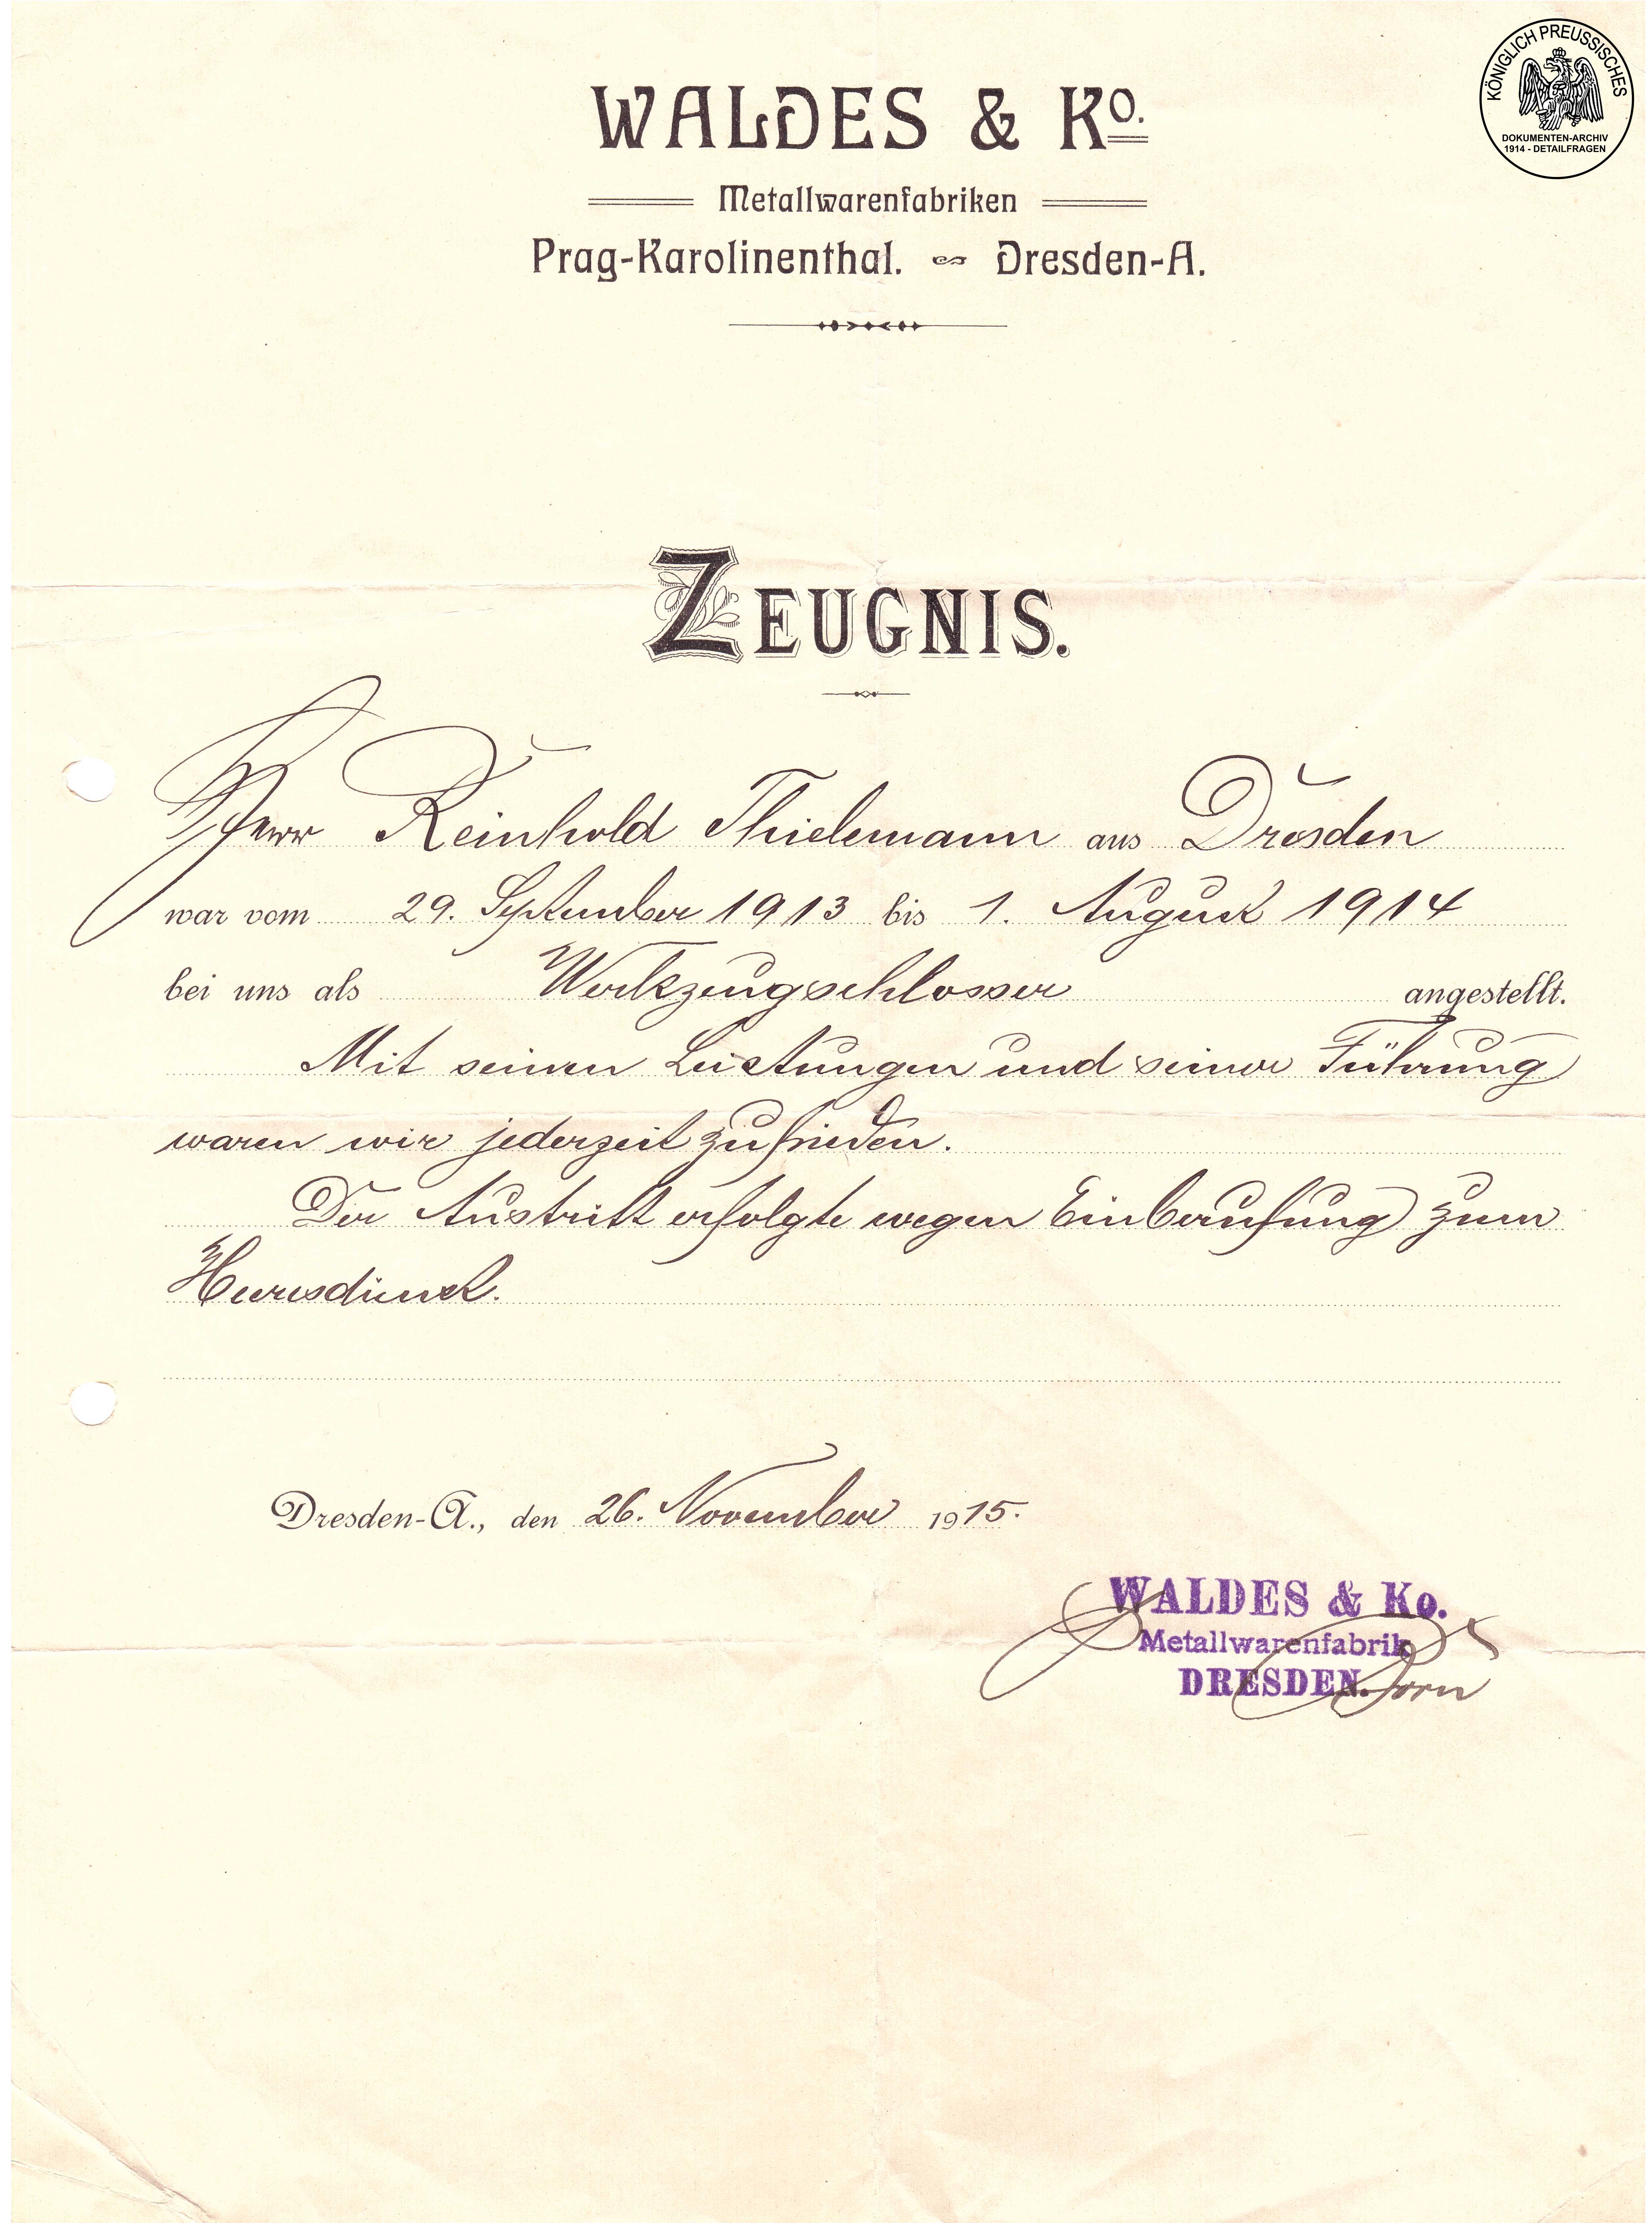 KÖNIGLICH PREUSSISCHES
DOKUMENTEN-ARCHIV
1914 - DETAILFRAGEN
WALDES & Ko.
Metallwarenfabriken
Prag-Karolinenthal. Dresden-A.
ZEUGNIS.
Herr Reinhold Thielemann aus Dresden
war vom 29. September 1913 bis 1. August 1914
bei uns als Werkzeugschlosser angestellt.
Mit seinen Leistungen und seiner Führung
waren wir jederzeit zufrieden.
Der Austritt erfolgte wegen Einberufung zum
Heeresdienst.
Dresden-A., den 26. November 1915.
WALDES & Ko.
Metallwarenfabrik
DRESDEN.